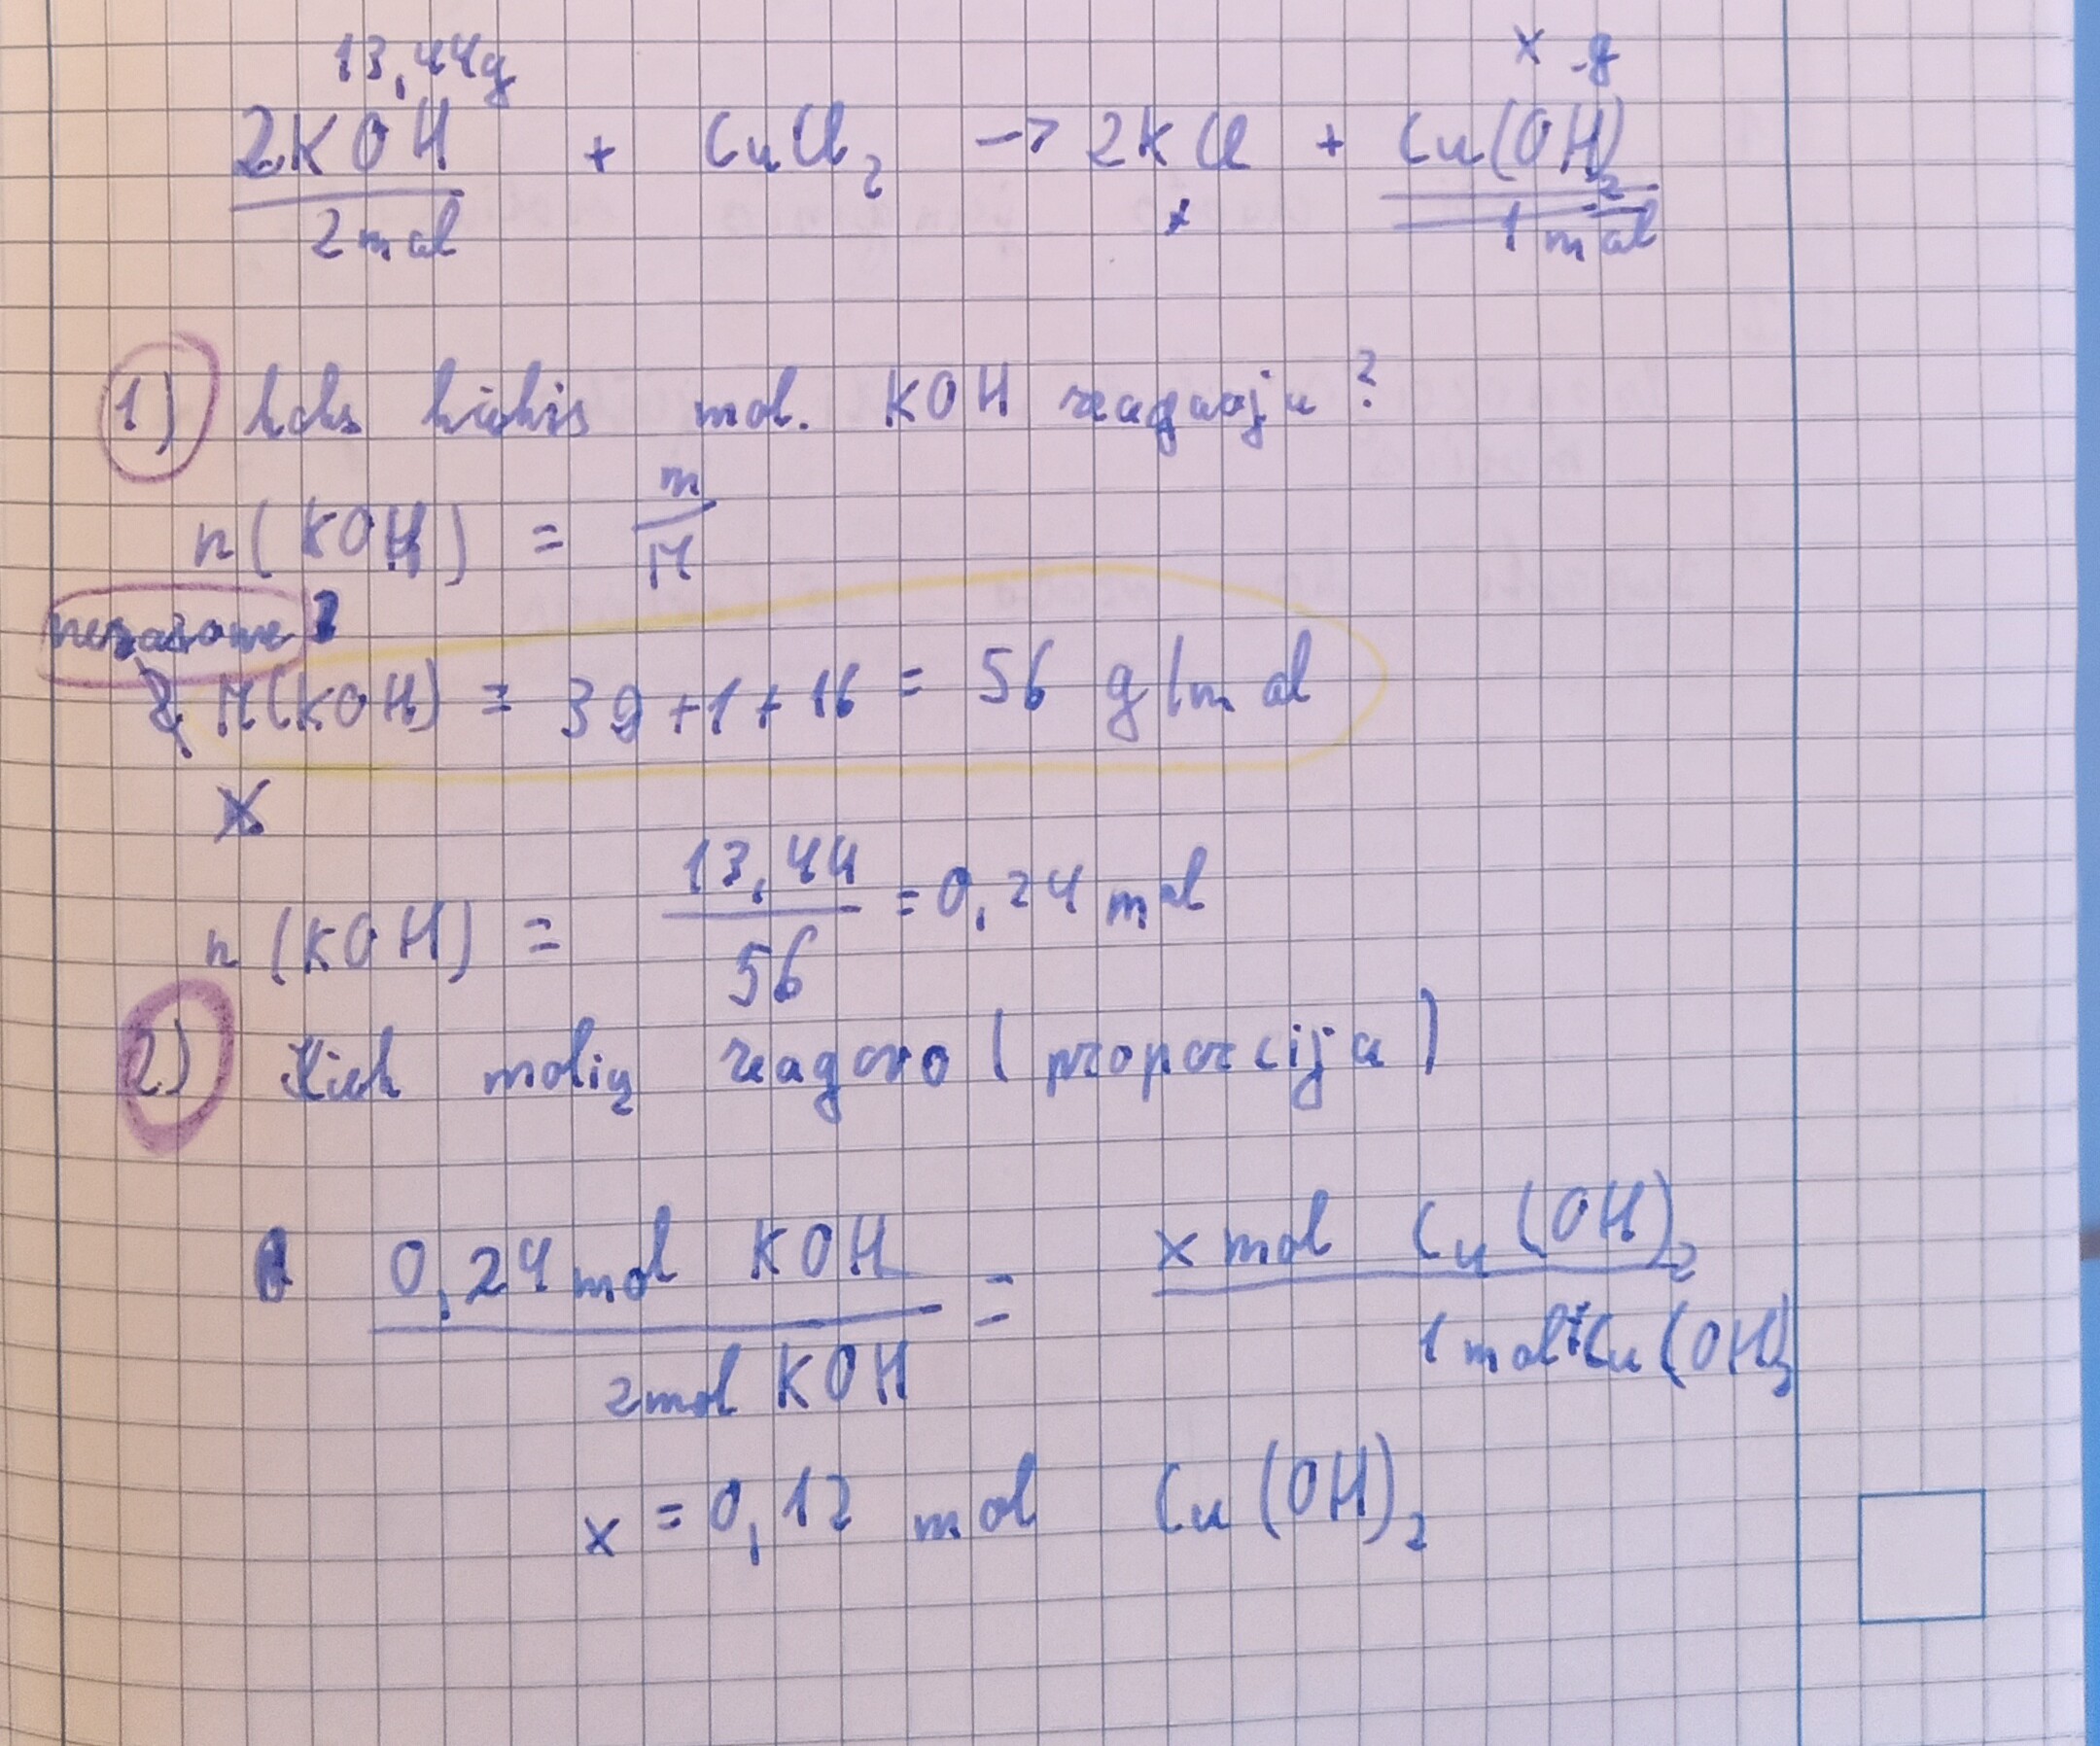 13,44g x g
2KOH + CuCl₂ → 2KCl + Cu(OH)₂
2 mol x 1 mol
1) koks kiekis mol. KOH reaguoja?
n(KOH) = m/M
nežinome
M(KOH) = 39+1+16 = 56 g/mol
x
n(KOH) = 13,44/56 = 0,24 mol
2) Kiek molių reagavo (proporcija)
0,24 mol KOH / 2 mol KOH = x mol Cu(OH)₂ / 1 mol Cu(OH)₂
x = 0,12 mol Cu(OH)₂